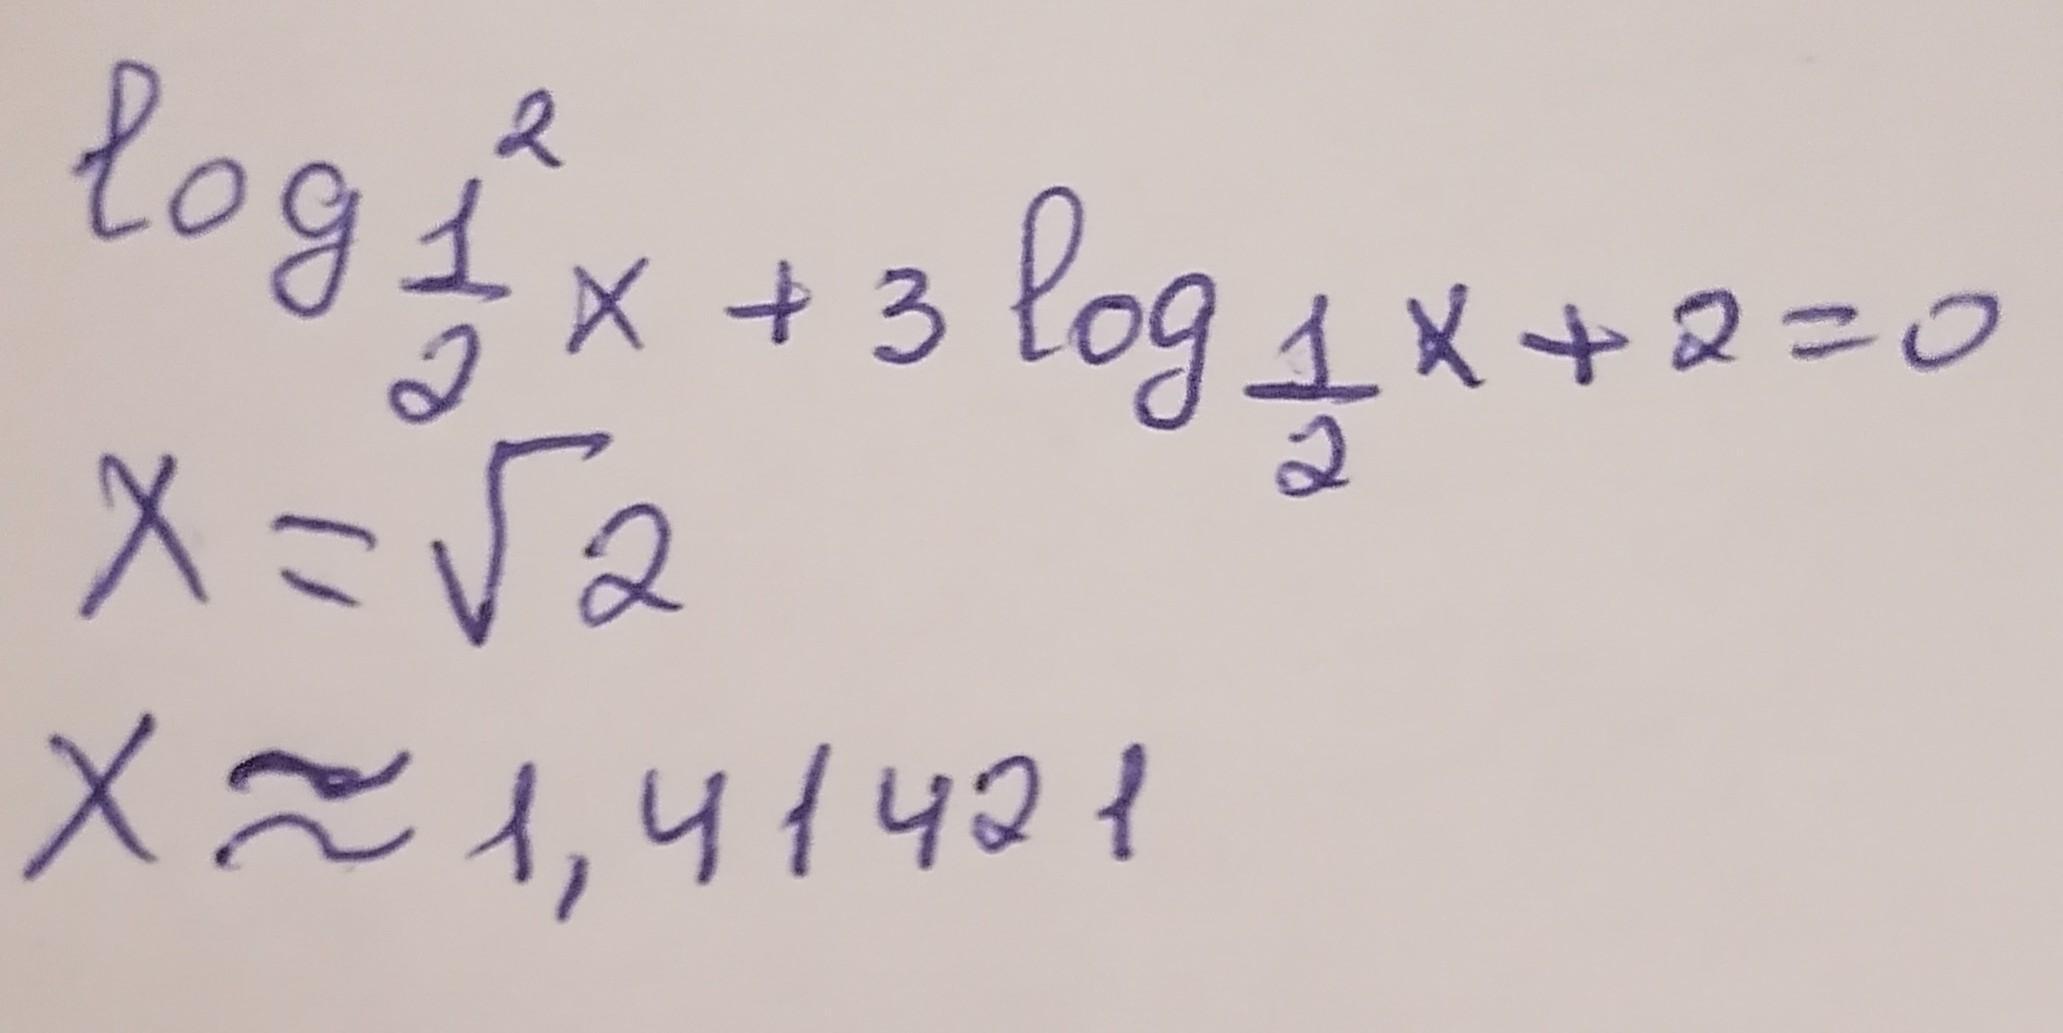 log²_{1/2} x + 3 log_{1/2} x + 2 = 0
x = √2
x ≈ 1,41421